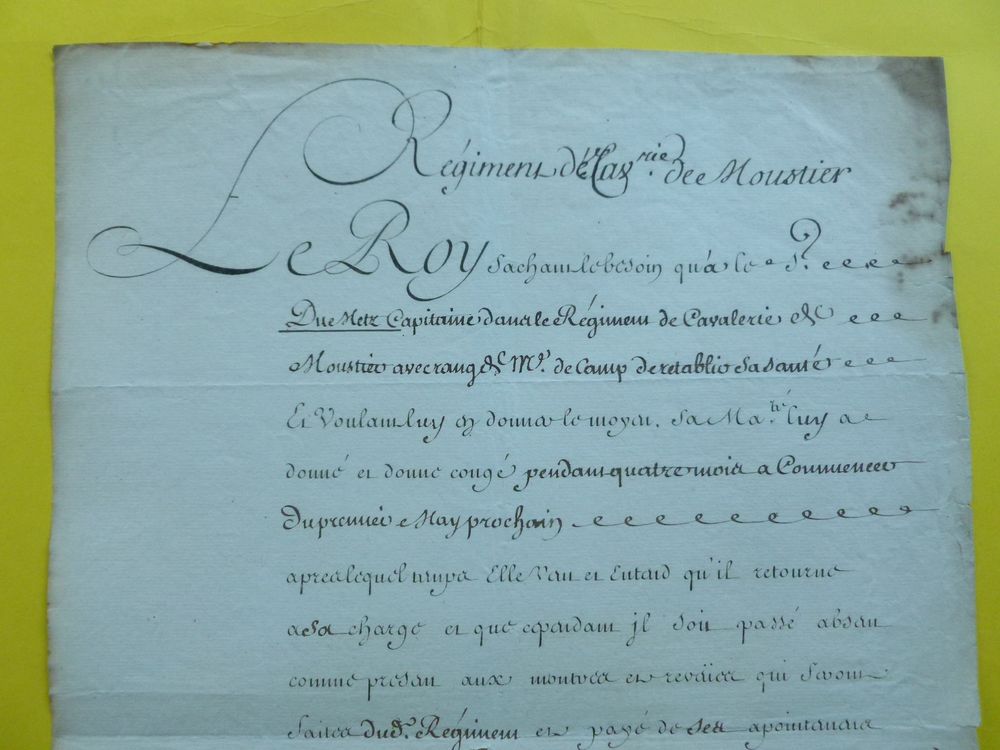 Régiment de Cav.rie de Moustier
Le Roy sachant le besoin qu'a le S.r
Du Metz Capitaine dans le Régiment de Cavalerie de
Moustier avec rang de M.e de Camp de retablir sa santé
Et Voulant luy en donner le moyen, sa Ma.té luy a
donné et donne congé pendant quatre mois a Commencer
du premier May prochain
apres lequel temps Elle Veut et Entend qu'il retourne
a sa charge et que cependant jl soit passé absent
comme present aux montres et reveües qui seront
faites du d.t Régiment et payé de ses apointemens